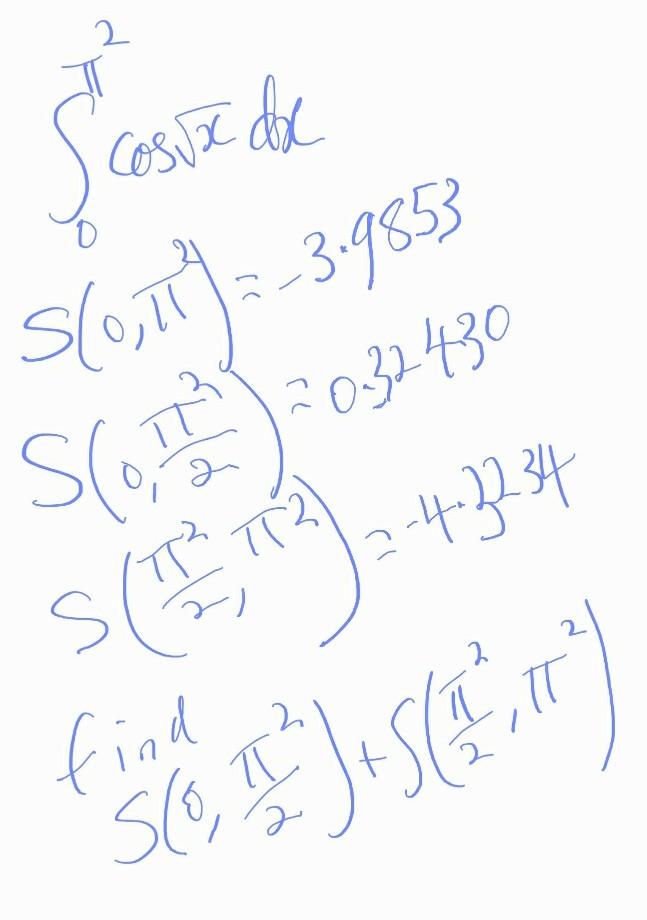 ∫₀^π² cos√x dx
S(0, π²) = -3.9853
S(0, π²/2) = 0.32430
S(π²/2, π²) = -4.3234
find
S(0, π²/2) + S(π²/2, π²)